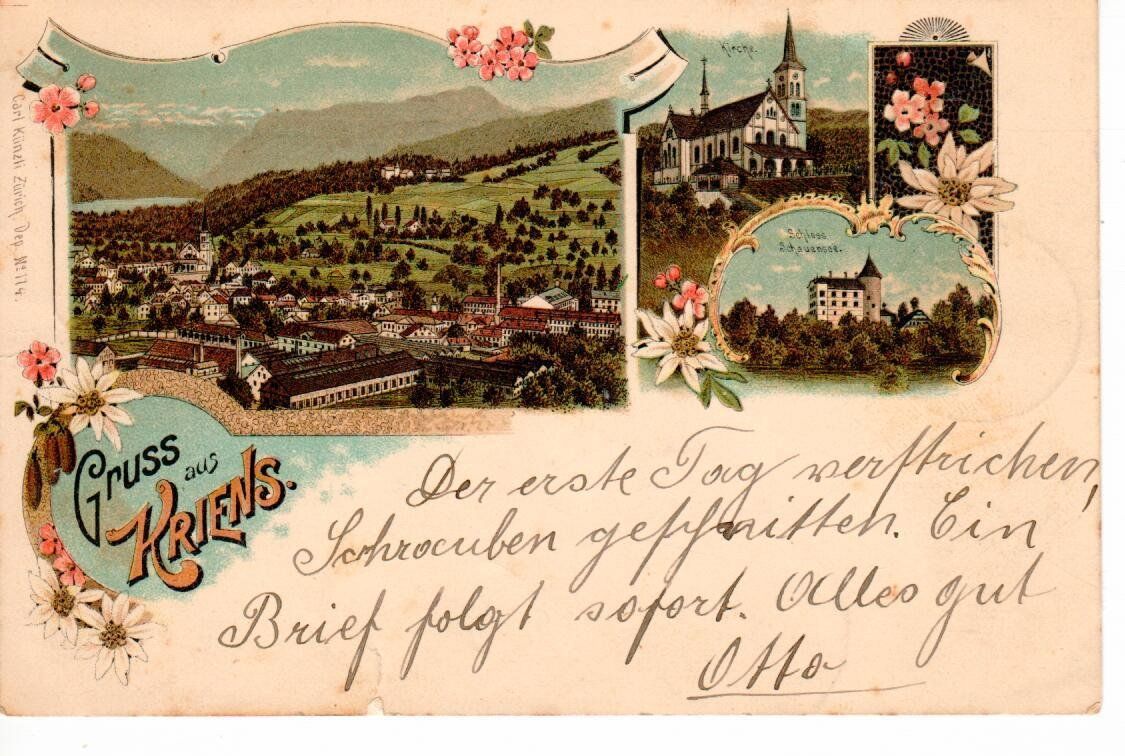 Carl Künzli Zürich, Dep. No 114.
Kirche.
Schloss
Schauensee.
Gruss
aus
KRIENS.
Der erste Tag verstrichen,
Schrauben geschnitten. Ein
Brief folgt sofort. Alles gut
Otto